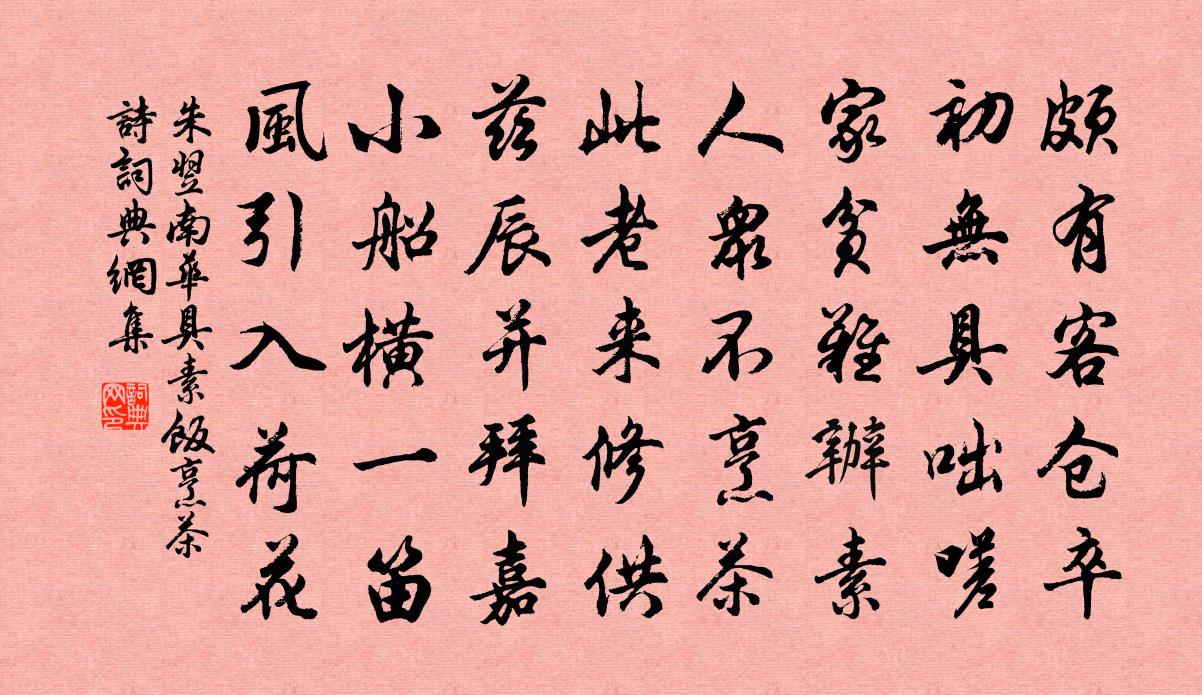 頗有客仓卒
初無具咄嗟
家貧難辦素
人眾不烹茶
此老来修供
茲辰并拜嘉
小船橫一笛
風引入荷花
朱翌南華具素飯烹茶
詩詞典網集
詞典网印